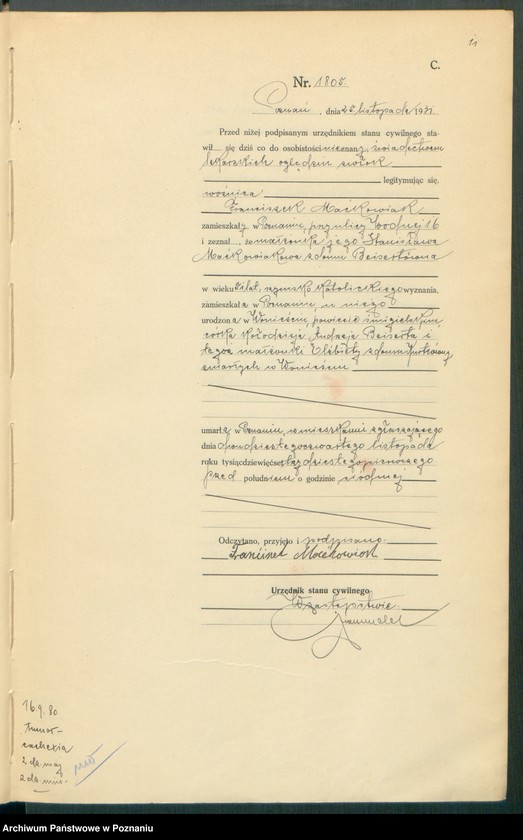 C.
Nr. 1805.
Poznań, dnia 25 listopada 1931
Przed niżej podpisanym urzędnikiem stanu cywilnego sta-
wił się dziś co do osobistości nieznany, świadectwem
lekarskich oględzin zwłok
legitymując się.
woźnica
Franciszek Maćkowiak
zamieszkały w Poznaniu, przy ulicy Wodnej 16
i zeznał, że małżonka jego Stanisława
Maćkowiakowa z domu Beisertówna
w wieku lat, rzymsko katolickiego wyznania,
zamieszkała w Poznaniu, u niego
urodzona w Wonieściu, powiecie śmigielskim,
córka kołodzieja Andrzeja Beiserta i
tegoż małżonki Elżbiety z domu
zmarłych w Wonieściu
umarła w Poznaniu, w mieszkaniu zgłaszającego
dnia dwudziestegoczwartego listopada
roku tysiącdziewięćset trzydziestegopierwszego
przed południem o godzinie siódmej
Odczytano, przyjęto i podpisano.
Franciszek Maćkowiak
Urzędnik stanu cywilnego
W zastępstwie
16.9.80
Tumor-
cachexia
2 dz. maj
2 dz.
Archiwum Państwowe w Poznaniu